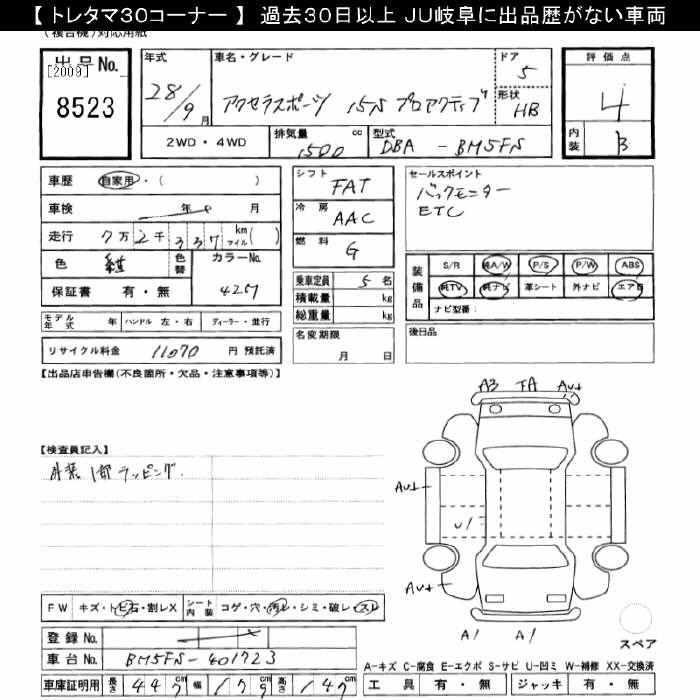 【 トレタマ30コーナー 】 過去30日以上 JU岐阜に出品歴がない車両
(複合機)対応用紙
出品No.
[2009]
8523
年式
28/9月
車名・グレード
アクセラスポーツ 15S プロアクティブ
ドア
5
形状
HB
評価点
4
内装
B
2WD・4WD
排気量
1500 cc
型式
DBA - BM5FS
車歴 自家用・( )
車検 年 月
走行 7万2千337 km マイル( )
色 紺
色替
カラーNo.
427
保証書 有・無
モデル年式 年
ハンドル 左・右
ディーラー・並行
リサイクル料金 11070 円 預託済
シフト FAT
冷房 AAC
燃料 G
乗車定員 5名
積載量 kg
総重量 kg
名変期限
月 日
セールスポイント
バックモニター
ETC
装備品
S/R 純A/W P/S P/W ABS
純TV 純ナビ 革シート 外ナビ エアB
ナビ型番:
後日品
【出品店申告欄(不良箇所・欠品・注意事項等)】
【検査員記入】
外装1部ラッピング.
A3 TA
A1 A1
FW キズ・トビ石・割レX
シート内装 コゲ・穴・汚レ・シミ・破レ・スレ
登録No.
車台No. BM5FS-401723
車庫証明用 長さ 447cm 幅 179cm 高さ 147cm
スペア
A-キズ C-腐食 E-エクボ S-サビ U-凹ミ W-補修 XX-交換済
工具 有・無 ジャッキ 有・無